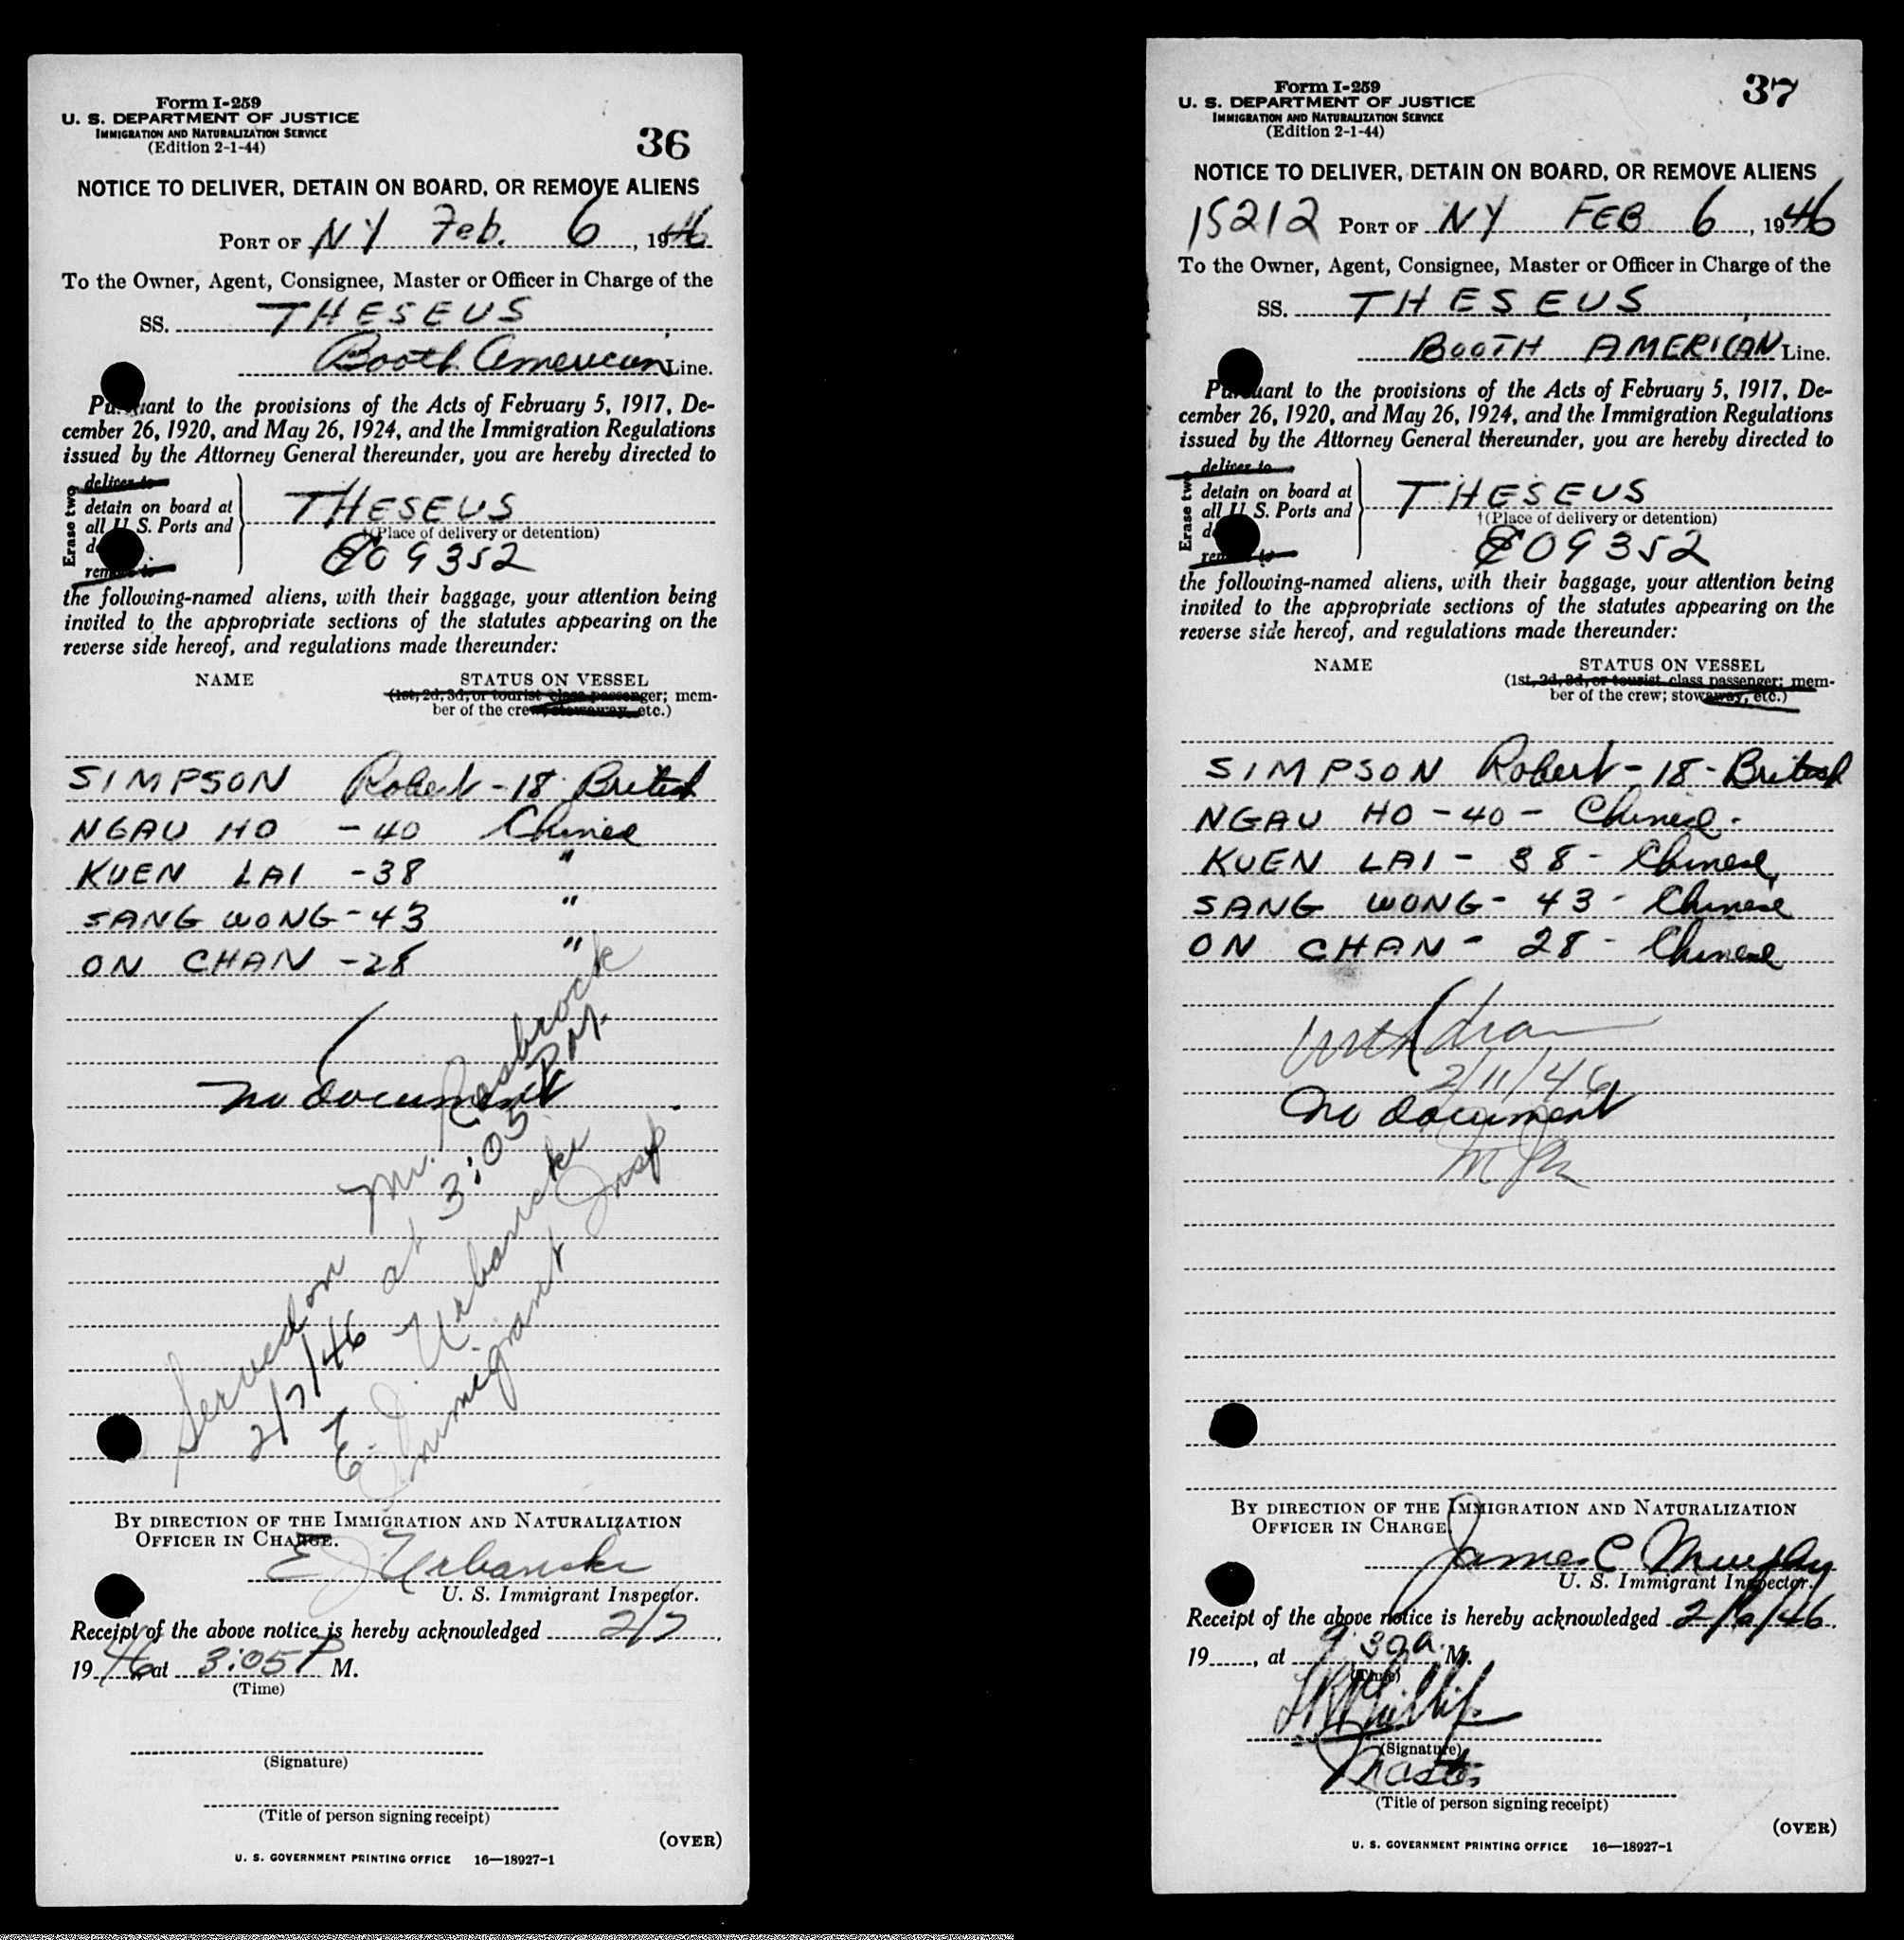 Form I-259
U. S. DEPARTMENT OF JUSTICE
IMMIGRATION AND NATURALIZATION SERVICE
(Edition 2-1-44)
36
NOTICE TO DELIVER, DETAIN ON BOARD, OR REMOVE ALIENS
PORT OF NY Feb. 6, 1946
To the Owner, Agent, Consignee, Master or Officer in Charge of the
SS. THESEUS,
Booth American Line.
Pursuant to the provisions of the Acts of February 5, 1917, De-
cember 26, 1920, and May 26, 1924, and the Immigration Regulations
issued by the Attorney General thereunder, you are hereby directed to
Erase two
deliver to
detain on board at
all U. S. Ports and
remove to
THESEUS
†(Place of delivery or detention)
809352
the following-named aliens, with their baggage, your attention being
invited to the appropriate sections of the statutes appearing on the
reverse side hereof, and regulations made thereunder:
NAME STATUS ON VESSEL
(1st, 2d, 3d, or tourist class passenger; mem-
ber of the crew; stowaway, etc.)
SIMPSON Robert - 18 British
NGAU HO - 40 Chinese
KUEN LAI - 38 "
SANG WONG - 43 "
ON CHAN - 28 "
no document
Served on Mr. Rosbrock
2/7/46 at 3:05 P.M.
E. J. Urbanski
Immigrant Insp
BY DIRECTION OF THE IMMIGRATION AND NATURALIZATION
OFFICER IN CHARGE.
E J Urbanski
U. S. Immigrant Inspector.
Receipt of the above notice is hereby acknowledged 2/7,
1946, at 3:05 P M.
(Time)
(Signature)
(Title of person signing receipt)
(OVER)
U. S. GOVERNMENT PRINTING OFFICE 16—18927-1
Form I-259
U. S. DEPARTMENT OF JUSTICE
IMMIGRATION AND NATURALIZATION SERVICE
(Edition 2-1-44)
37
NOTICE TO DELIVER, DETAIN ON BOARD, OR REMOVE ALIENS
15212 PORT OF NY FEB 6, 1946
To the Owner, Agent, Consignee, Master or Officer in Charge of the
SS. THESEUS,
BOOTH AMERICAN Line.
Pursuant to the provisions of the Acts of February 5, 1917, De-
cember 26, 1920, and May 26, 1924, and the Immigration Regulations
issued by the Attorney General thereunder, you are hereby directed to
Erase two
deliver to
detain on board at
all U. S. Ports and
remove to
THESEUS
†(Place of delivery or detention)
809352
the following-named aliens, with their baggage, your attention being
invited to the appropriate sections of the statutes appearing on the
reverse side hereof, and regulations made thereunder:
NAME STATUS ON VESSEL
(1st, 2d, 3d, or tourist class passenger; mem-
ber of the crew; stowaway, etc.)
SIMPSON Robert - 18 - British
NGAU HO - 40 - Chinese.
KUEN LAI - 38 - Chinese,
SANG WONG - 43 - Chinese
ON CHAN - 28 - Chinese
2/11/46
no document
BY DIRECTION OF THE IMMIGRATION AND NATURALIZATION
OFFICER IN CHARGE.
James C Murphy
U. S. Immigrant Inspector.
Receipt of the above notice is hereby acknowledged 2/6/46,
19 , at 9:30 a. M.
(Time)
(Signature)
Master
(Title of person signing receipt)
(OVER)
U. S. GOVERNMENT PRINTING OFFICE 16—18927-1